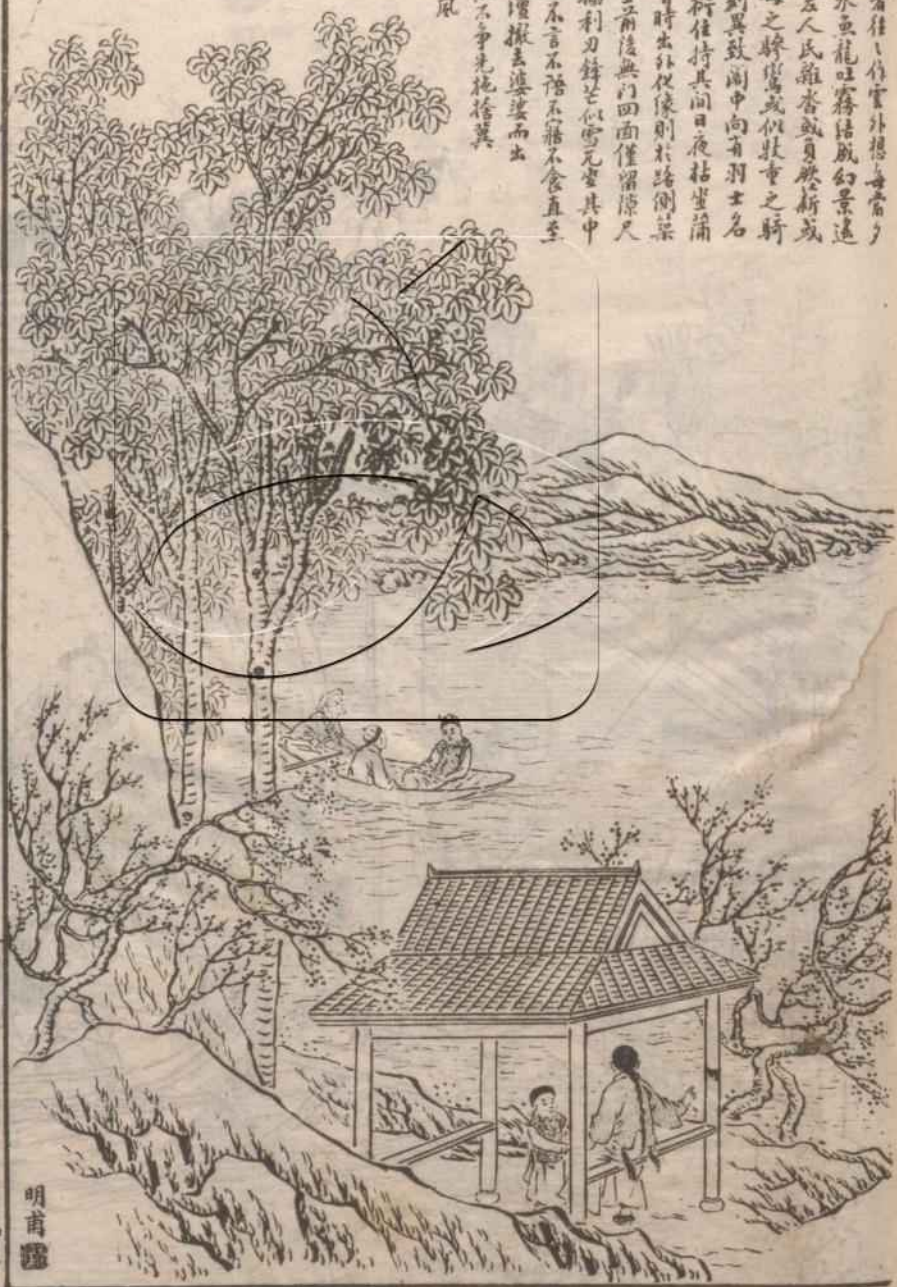 往〻作雲外想每當夕
水魚龍吐霧結成幻景遠
人民雜沓或負厥薪或
之驂鸞或似牧童之騎
到異致閩中向有羽士名
衍住持其間日夜枯坐蒲
時出外化緣則於路側築
立前後無門四面僅留隙尺
利刃鋒芒似雪兀坐其中
不言不語不寤不食直至
壇撤去婆娑而出
不爭先施捨冀
風
明甫